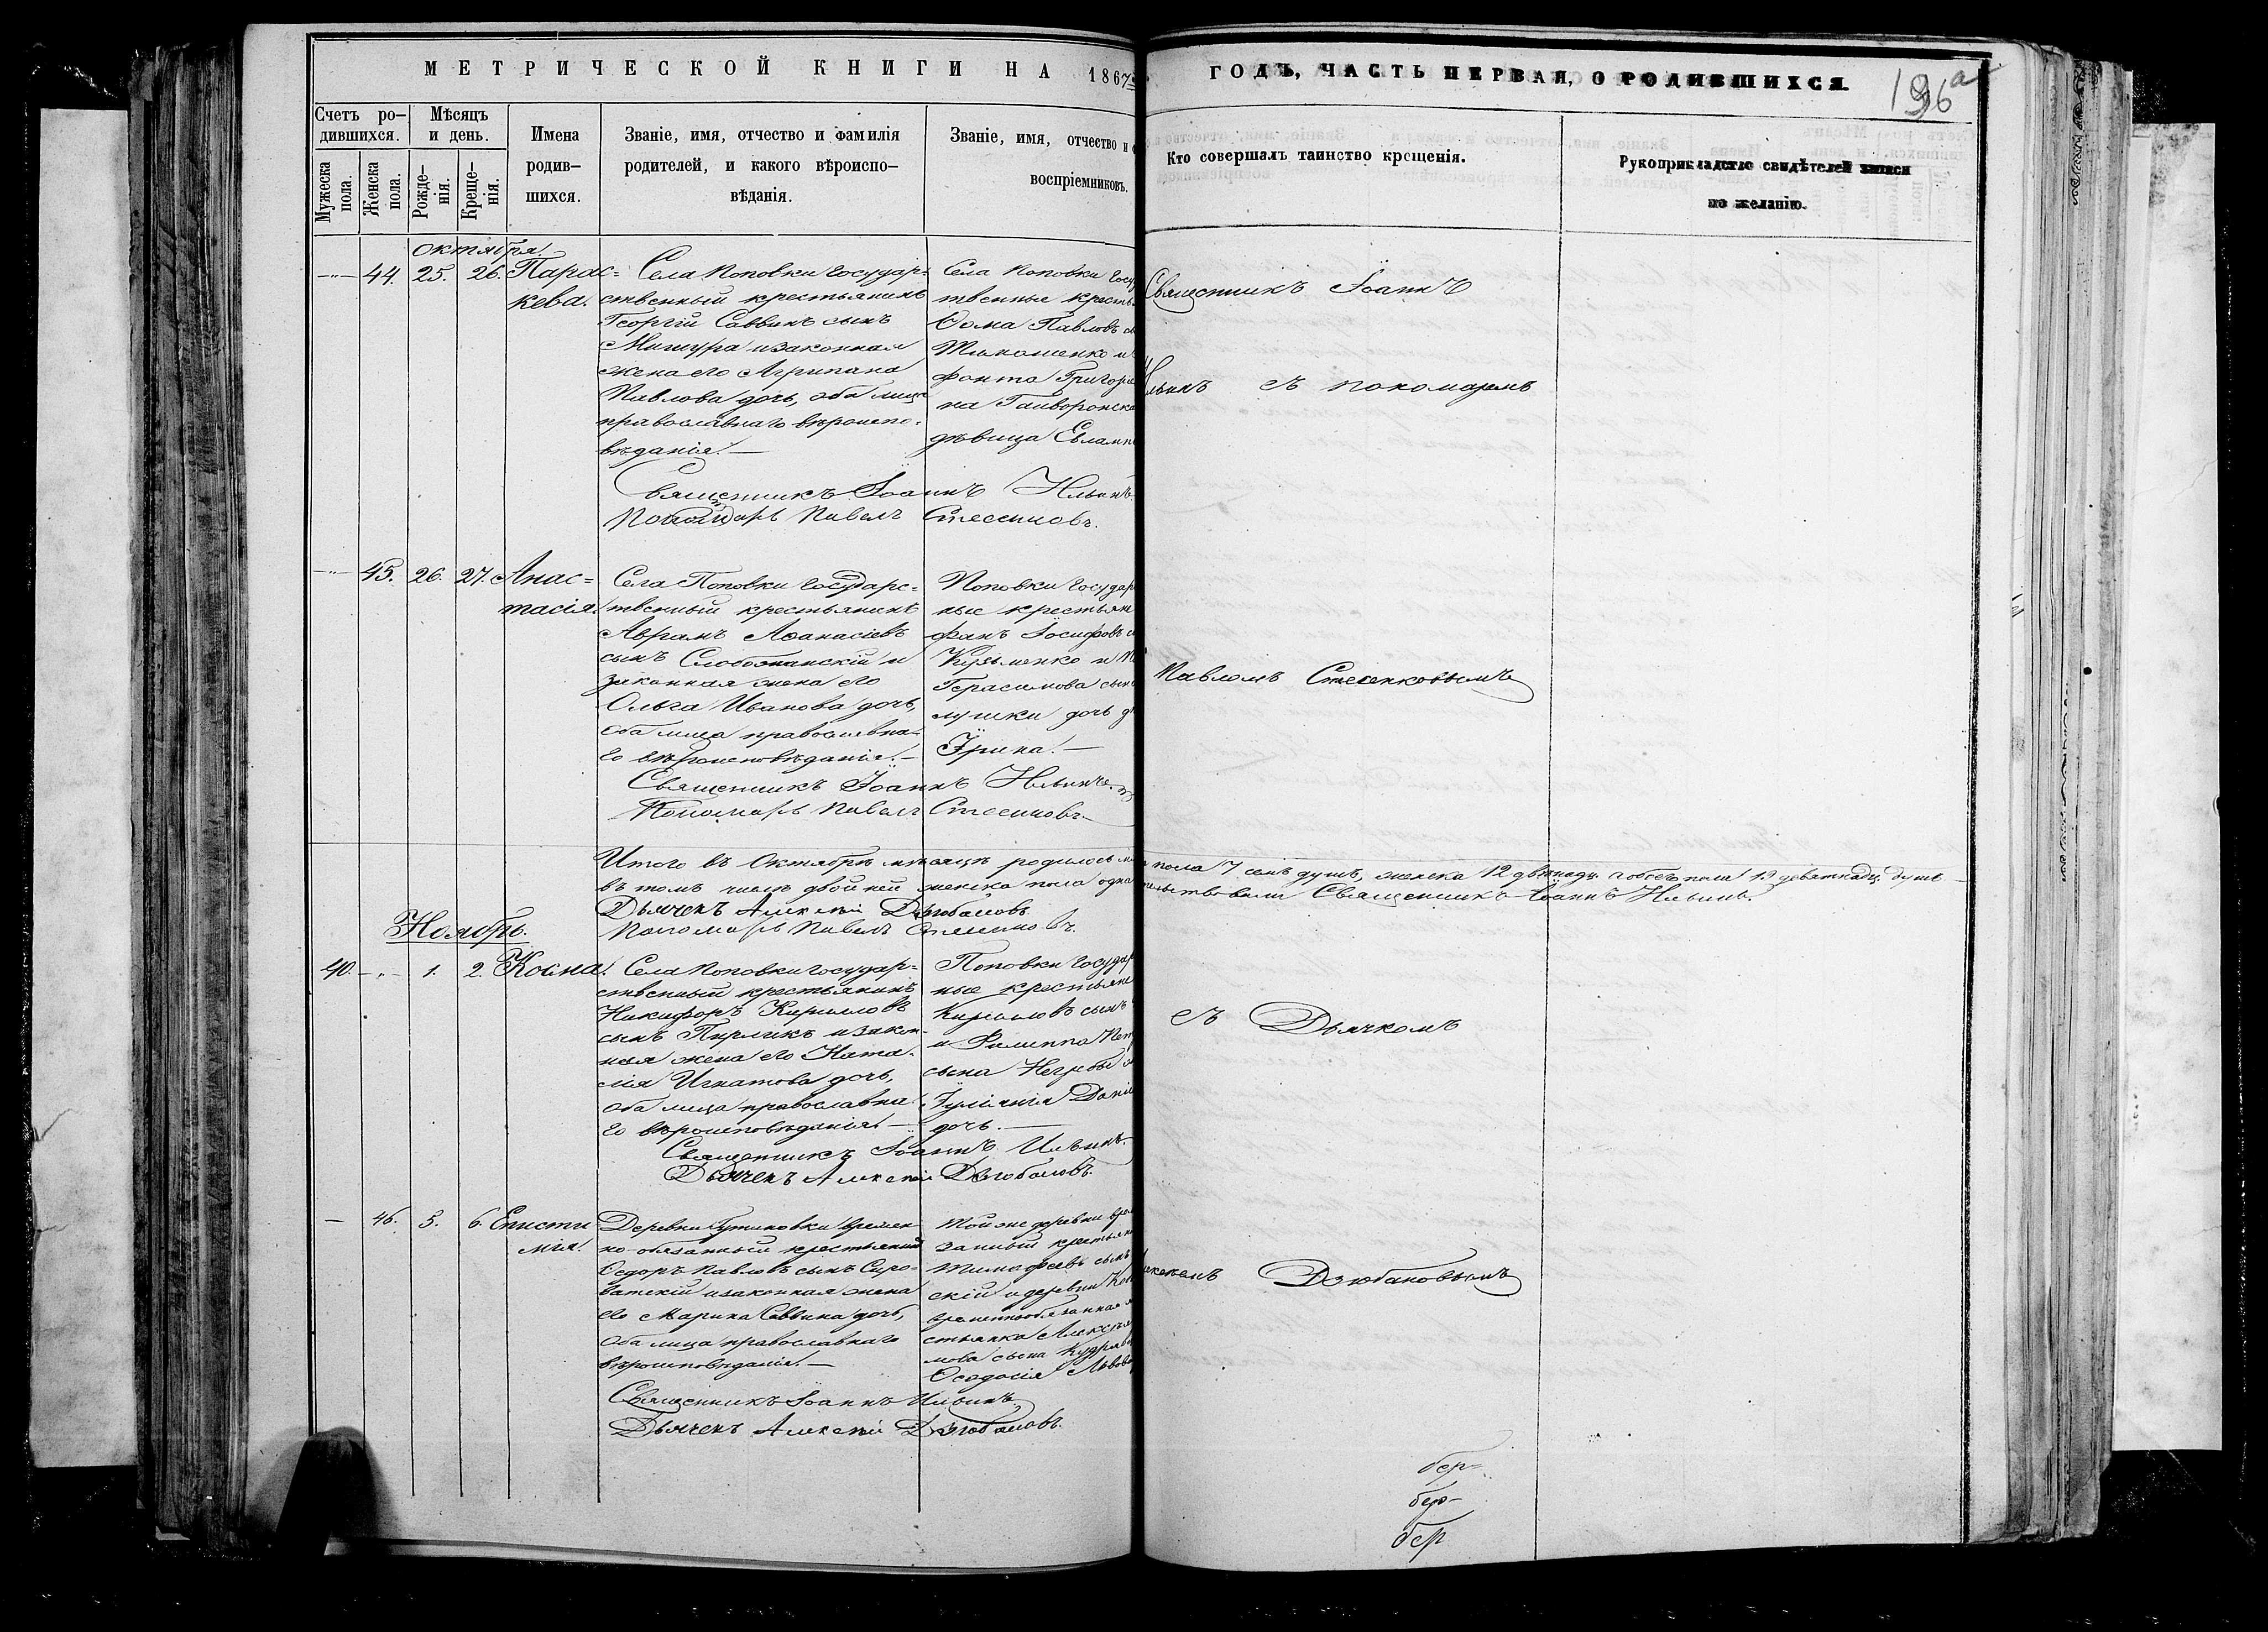 МЕТРИЧЕСКОЙ КНИГИ НА 1867
ГОДЪ, ЧАСТЬ ПЕРВАЯ, О РОДИВШИХСЯ.
196а
Счетъ ро-
дившихся.
Мужеска пола.
Женска пола.
Мѣсяцъ
и день.
Рожде-
нія.
Креще-
нія.
Имена
родив-
шихся.
Званіе, имя, отчество и фамилія
родителей, и какого вѣроиспо-
вѣданія.
Званіе, имя, отчество и
воспріемниковъ.
Кто совершалъ таинство крещенія.
Рукоприкладство свидѣтелей записи
по желанію.
октября
44. 25. 26. Парас=
кева.
Села Поповки государ=
ственный крестьянинъ
Георгій Саввинъ сынъ
Мишура и законная
жена его Агрипина
Павлова дочь, оба лица
православнаго вѣроиспо-
вѣданія. —
Села Поповки госу
твенные кресть
Ѳома Павловъ с
Тимошенко и
фонта Григорь
на Гайворонска
дѣвица Евламп
Священникъ Іоаннъ Ильинъ.
Пономарь Павелъ Стесенковъ.
Священникъ Іоаннъ
Ильинъ съ пономаремъ
45. 26. 27. Анас=
тасія.
Села Поповки государс=
твенный крестьянинъ
Аврамъ Аѳанасіевъ
сынъ Слобожанскій и
законная жена его
Ольга Иванова дочь,
оба лица православна-
го вѣроисповѣданія. —
Поповки государ
ные крестьян
фанъ Іосифовъ с
Кузьменко и
Герасимова сын
лушки дочь д
Ірина. —
Священникъ Іоаннъ Ильинъ.
Пономарь Павелъ Стесенковъ.
Павломъ Стесенковымъ
Итого въ Октябрѣ мѣсяцѣ родилось м
пола 7 семь душъ, женска 12 двѣнадц. обоего пола 19 девятнадц. душъ
въ томъ числѣ двойней женска пола одна
тельствовали Священникъ Іоаннъ Ильинъ.
Дьячекъ Алексѣй Дзюбановъ
Пономарь Павелъ Стесенковъ.
Ноябрь.
40. 1. 2. Косма.
Села Поповки государ=
ственный крестьянинъ
Никифоръ Кирилловъ
сынъ Пирликъ и закон-
ная жена его Ната-
лія Игнатова дочь,
оба лица православна-
го вѣроисповѣданія. —
Поповки государ
ные крестьяне
Кирилловъ сынъ
и Филиппа Пет
сына Негребы
Іуліанія Даніи
дочь. —
Священникъ Іоаннъ Ильинъ.
Дьячекъ Алексѣй Дзюбановъ.
съ Дьячкомъ
46. 5. 6. Еписти
мія.
Деревни времен
но-обязанный крестьянинъ
Ѳедоръ Павловъ сынъ Сиро-
ватскій и законная жена
его Марина Саввина дочь,
оба лица православнаго
вѣроисповѣданія. —
Той же деревни вре
занный крестьян
Тимофеевъ сынъ
скій и деревни
временнообязанная
стьянка Алексѣя
мова сына Кудряв
Ѳеодосія Львова
Священникъ Іоаннъ Ильинъ
Дьячекъ Алексѣй Дзюбановъ.
Алексѣемъ Дзюбановымъ
бер-
бер-
бер